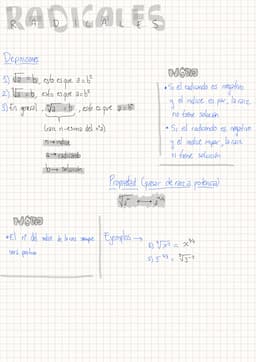 RADICALES
RADICALES
Definiciones
1) √a = b, esto es que a=b²
2) ³√a = b, esto es que a=b³
3) En general, ⁿ√a = b, este es que a=bⁿ
(raíz n-esima del nº a)
n → índice
a → radicando
b → solución
NOTA
• Si el radicando es negativo
y el índice es par, la raíz
no tiene solución
• Si el radicando es negativo
y el índice impar, la raíz
si tiene solución
Propiedad (pasar de raíz a potencia)
NOTA
• El nº del índice de la raíz siempre
será positivo
Ejemplos →